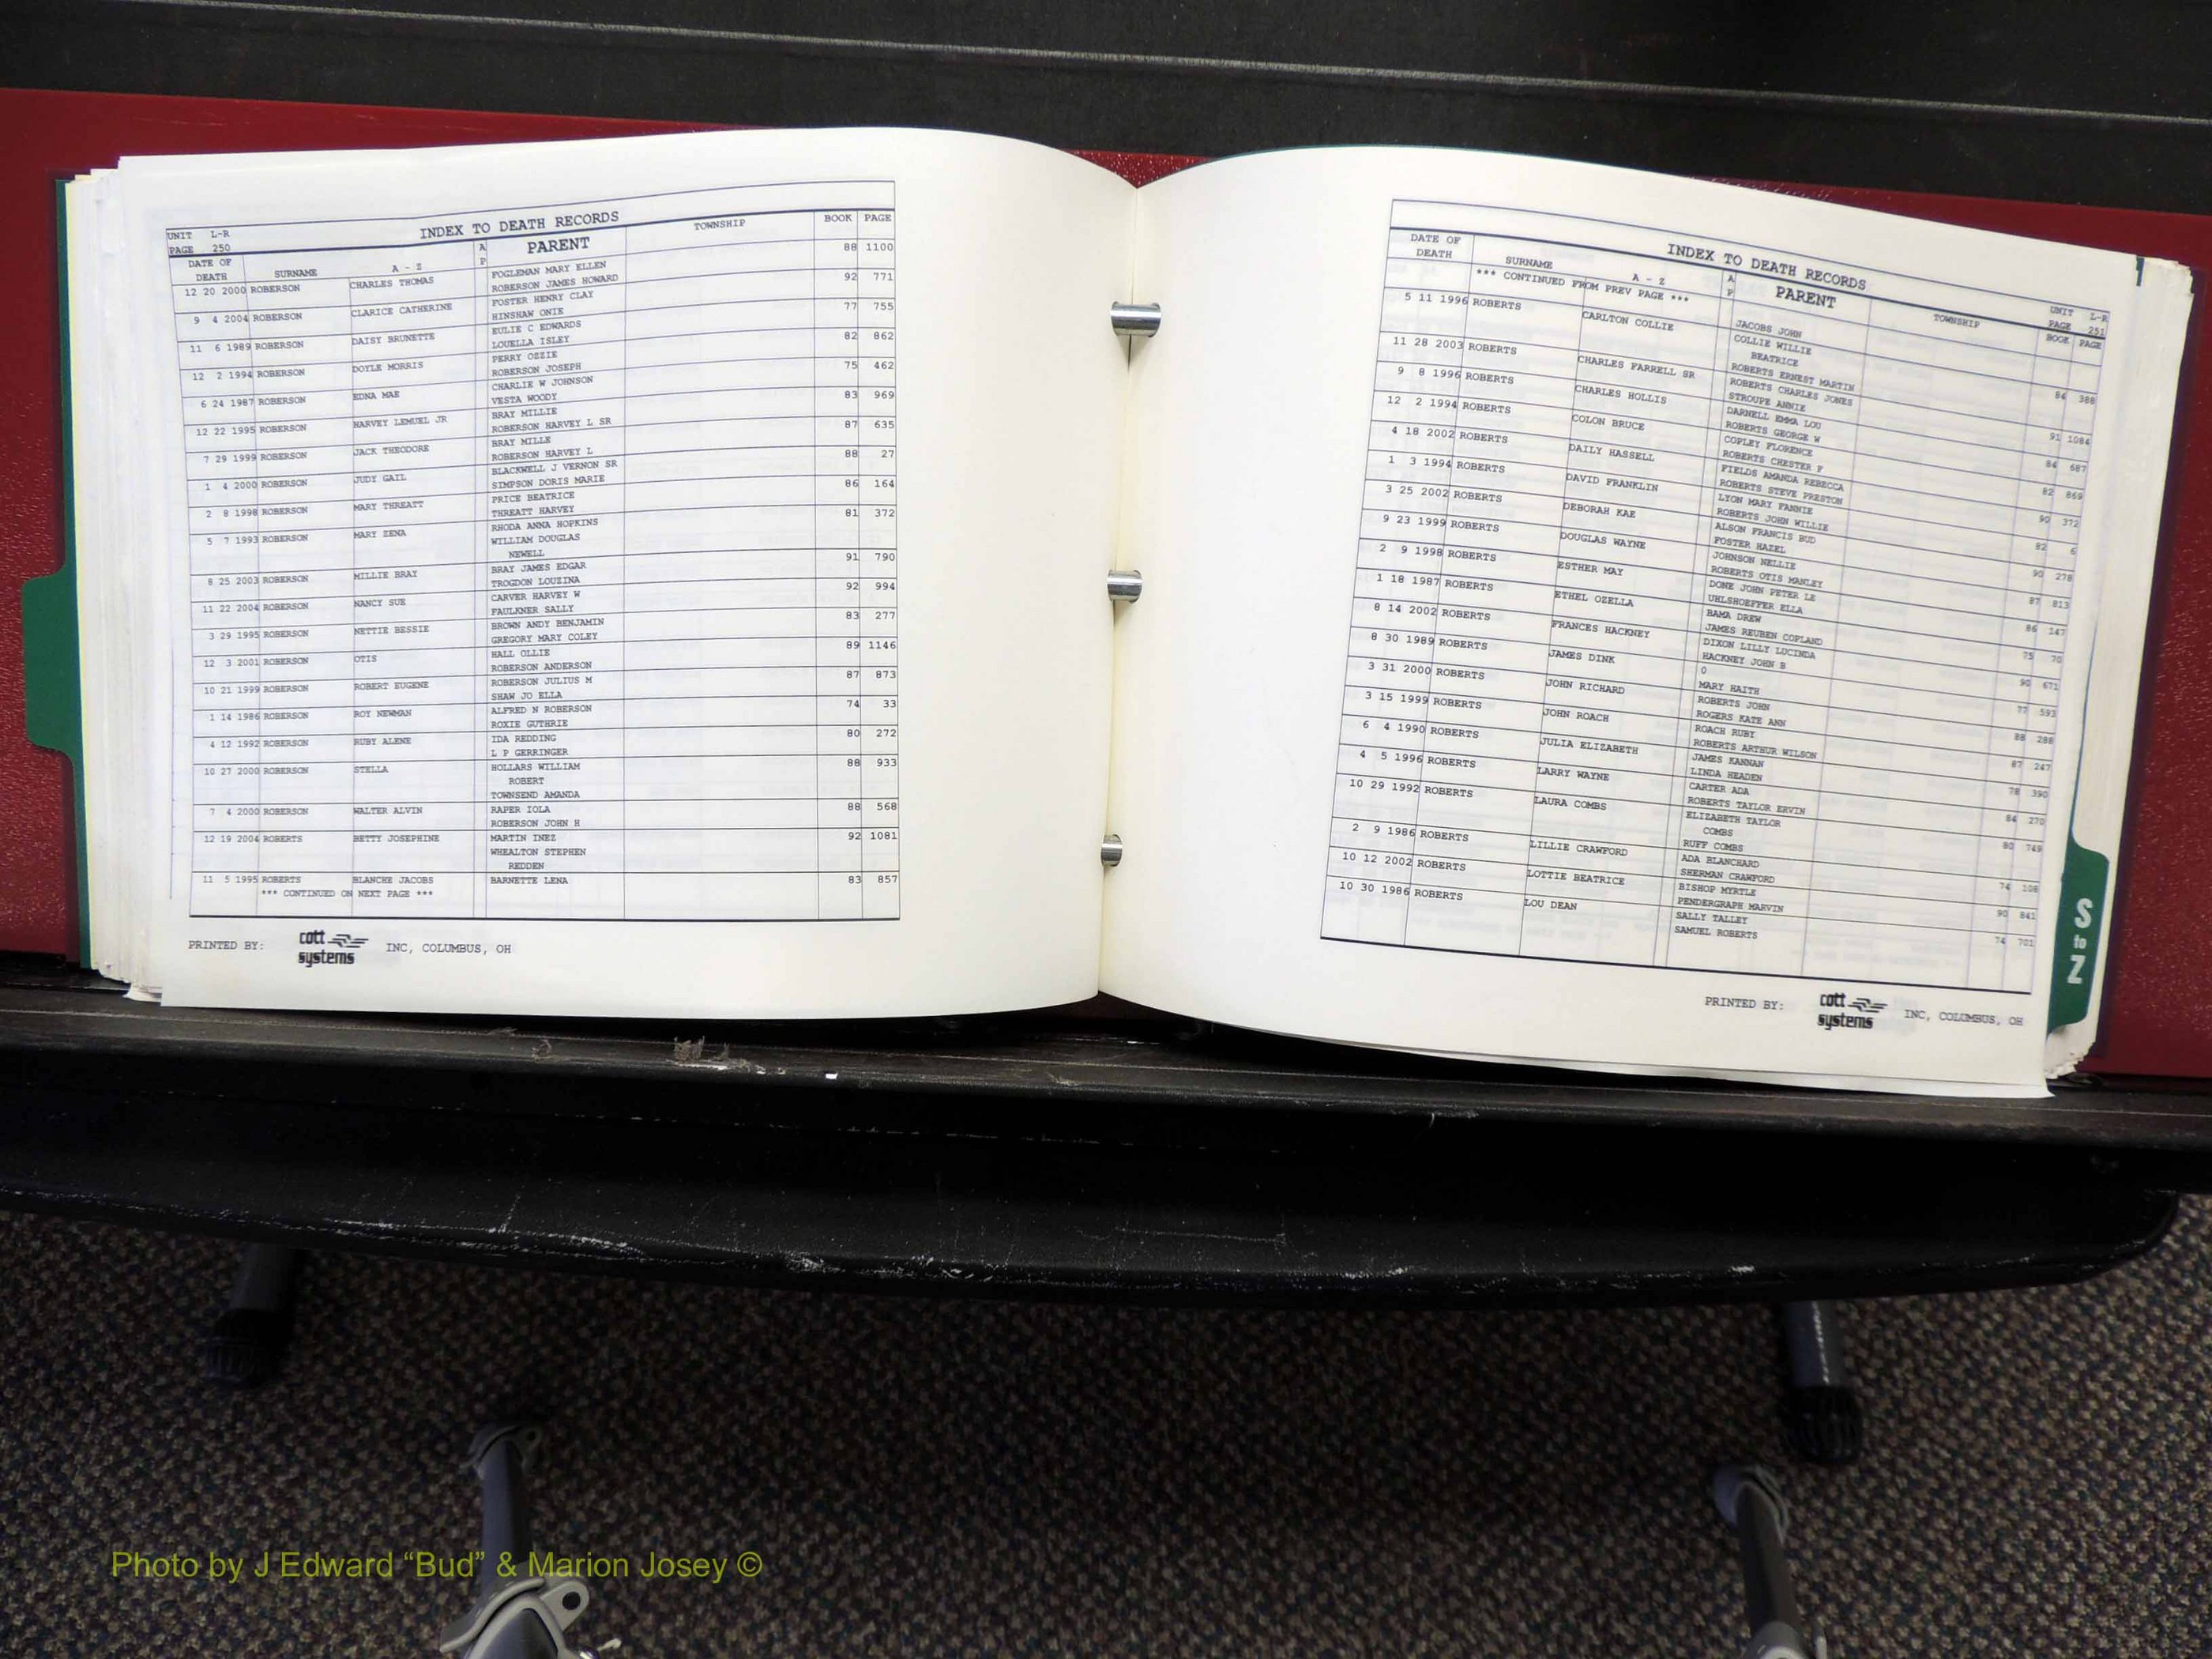 UNIT L-R
PAGE 250
INDEX TO DEATH RECORDS
DATE OF DEATH SURNAME A - Z A P PARENT TOWNSHIP BOOK PAGE
12 20 2000 ROBERSON CHARLES THOMAS FOGLEMAN MARY ELLEN 88 1100
ROBERSON JAMES HOWARD
9 4 2004 ROBERSON CLARICE CATHERINE FOSTER HENRY CLAY 92 771
HINSHAW ONIE
11 6 1989 ROBERSON DAISY BRUNETTE EULIE C EDWARDS 77 755
LOUELLA ISLEY
12 2 1994 ROBERSON DOYLE MORRIS PERRY OZZIE 82 862
ROBERSON JOSEPH
6 24 1987 ROBERSON EDNA MAE CHARLIE W JOHNSON 75 462
VESTA WOODY
12 22 1995 ROBERSON HARVEY LEMUEL JR BRAY MILLIE 83 969
ROBERSON HARVEY L SR
7 29 1999 ROBERSON JACK THEODORE BRAY MILLE 87 635
ROBERSON HARVEY L
1 4 2000 ROBERSON JUDY GAIL BLACKWELL J VERNON SR 88 27
SIMPSON DORIS MARIE
2 8 1998 ROBERSON MARY THREATT PRICE BEATRICE 86 164
THREATT HARVEY
5 7 1993 ROBERSON MARY ZENA RHODA ANNA HOPKINS 81 372
WILLIAM DOUGLAS
NEWELL
8 25 2003 ROBERSON MILLIE BRAY BRAY JAMES EDGAR 91 790
TROGDON LOUZINA
11 22 2004 ROBERSON NANCY SUE CARVER HARVEY W 92 994
FAULKNER SALLY
3 29 1995 ROBERSON NETTIE BESSIE BROWN ANDY BENJAMIN 83 277
GREGORY MARY COLEY
12 3 2001 ROBERSON OTIS HALL OLLIE 89 1146
ROBERSON ANDERSON
10 21 1999 ROBERSON ROBERT EUGENE ROBERSON JULIUS M 87 873
SHAW JO ELLA
1 14 1986 ROBERSON ROY NEWMAN ALFRED N ROBERSON 74 33
ROXIE GUTHRIE
4 12 1992 ROBERSON RUBY ALENE IDA REDDING 80 272
L P GERRINGER
10 27 2000 ROBERSON STELLA HOLLARS WILLIAM 88 933
ROBERT
TOWNSEND AMANDA
7 4 2000 ROBERSON WALTER ALVIN RAPER IOLA 88 568
ROBERSON JOHN H
12 19 2004 ROBERTS BETTY JOSEPHINE MARTIN INEZ 92 1081
WHEALTON STEPHEN
REDDEN
11 5 1995 ROBERTS BLANCHE JACOBS BARNETTE LENA 83 857
*** CONTINUED ON NEXT PAGE ***
PRINTED BY: cott systems INC, COLUMBUS, OH
INDEX TO DEATH RECORDS
UNIT L-R
PAGE 251
DATE OF DEATH SURNAME A - Z A P PARENT TOWNSHIP BOOK PAGE
*** CONTINUED FROM PREV PAGE ***
JACOBS JOHN
5 11 1996 ROBERTS CARLTON COLLIE COLLIE WILLIE 84 388
BEATRICE
ROBERTS ERNEST MARTIN
11 28 2003 ROBERTS CHARLES FARRELL SR ROBERTS CHARLES JONES 91 1084
STROUPE ANNIE
9 8 1996 ROBERTS CHARLES HOLLIS DARNELL EMMA LOU 84 687
ROBERTS GEORGE W
12 2 1994 ROBERTS COLON BRUCE COPLEY FLORENCE 82 869
ROBERTS CHESTER F
4 18 2002 ROBERTS DAILY HASSELL FIELDS AMANDA REBECCA 90 372
ROBERTS STEVE PRESTON
1 3 1994 ROBERTS DAVID FRANKLIN LYON MARY FANNIE 82 6
ROBERTS JOHN WILLIE
3 25 2002 ROBERTS DEBORAH KAE ALSON FRANCIS BUD 90 278
FOSTER HAZEL
9 23 1999 ROBERTS DOUGLAS WAYNE JOHNSON NELLIE 87 813
ROBERTS OTIS MANLEY
2 9 1998 ROBERTS ESTHER MAY DONE JOHN PETER LE 86 147
UHLSHOEFFER ELLA
1 18 1987 ROBERTS ETHEL OZELLA BAMA DREW 75 70
JAMES REUBEN COPLAND
8 14 2002 ROBERTS FRANCES HACKNEY DIXON LILLY LUCINDA 90 671
HACKNEY JOHN B
8 30 1989 ROBERTS JAMES DINK 0 77 593
MARY HAITH
3 31 2000 ROBERTS JOHN RICHARD ROBERTS JOHN 88 288
ROGERS KATE ANN
3 15 1999 ROBERTS JOHN ROACH ROACH RUBY 87 247
ROBERTS ARTHUR WILSON
6 4 1990 ROBERTS JULIA ELIZABETH JAMES KANNAN 78 390
LINDA HEADEN
4 5 1996 ROBERTS LARRY WAYNE CARTER ADA 84 270
ROBERTS TAYLOR ERVIN
10 29 1992 ROBERTS LAURA COMBS ELIZABETH TAYLOR 80 749
COMBS
RUFF COMBS
2 9 1986 ROBERTS LILLIE CRAWFORD ADA BLANCHARD 74 108
SHERMAN CRAWFORD
10 12 2002 ROBERTS LOTTIE BEATRICE BISHOP MYRTLE 90 841
PENDERGRAPH MARVIN
10 30 1986 ROBERTS LOU DEAN SALLY TALLEY 74 701
SAMUEL ROBERTS
PRINTED BY: cott systems INC, COLUMBUS, OH
S to Z
Photo by J Edward “Bud” & Marion Josey ©